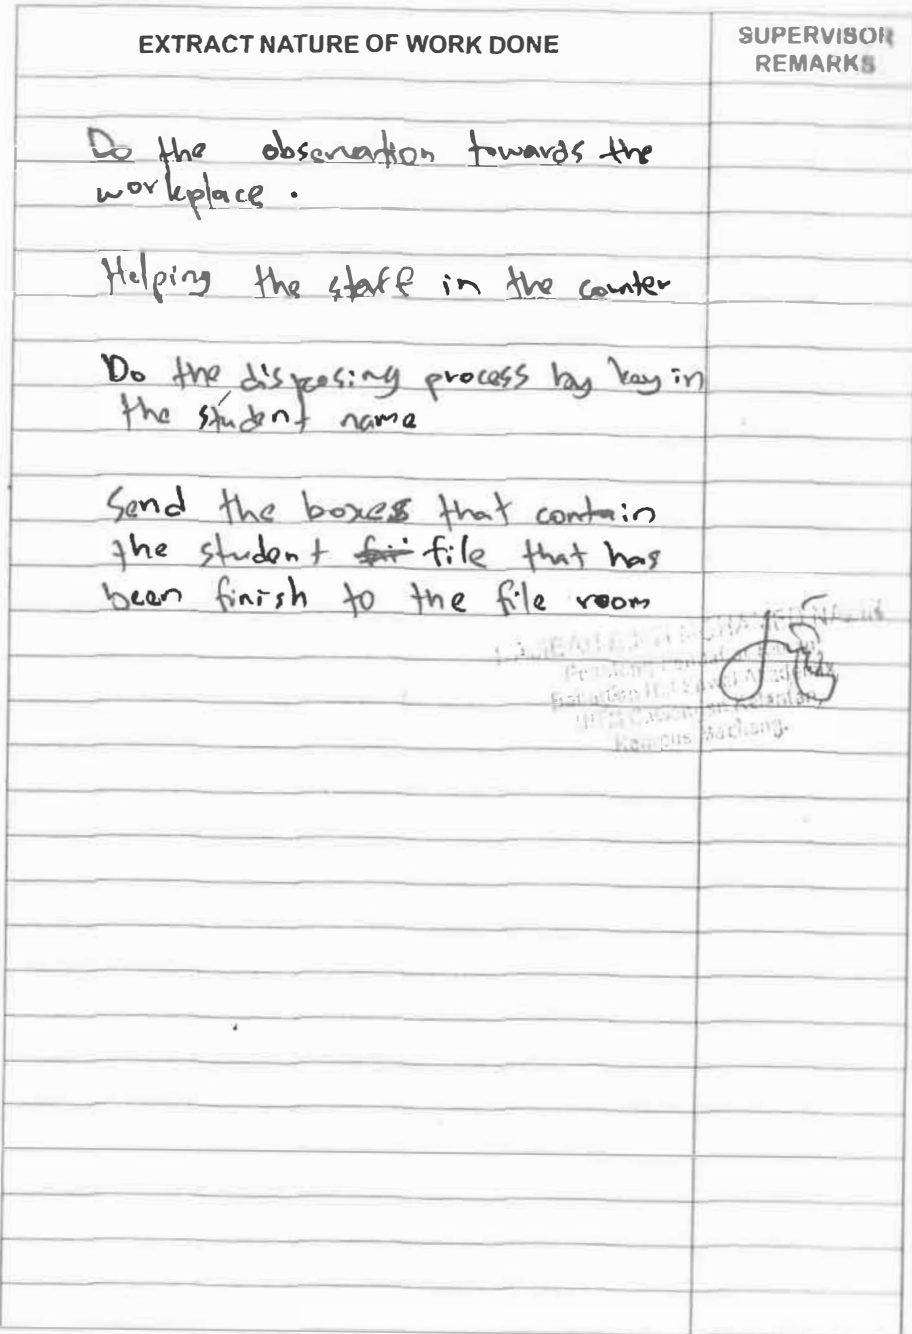 EXTRACT NATURE OF WORK DONE
SUPERVISOR
REMARKS
Do the observation towards the
workplace.
Helping the staff in the counter
Do the disposing process by key in
the student name
Send the boxes that contain
the student file that has
been finish to the file room
Kelantan,
Kampus Machang.